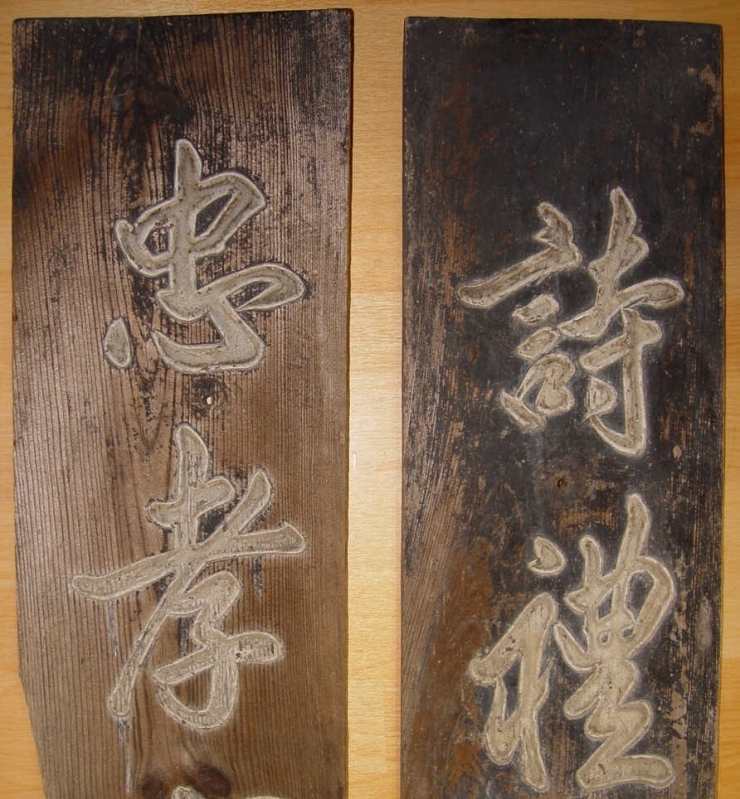 詩禮
忠孝